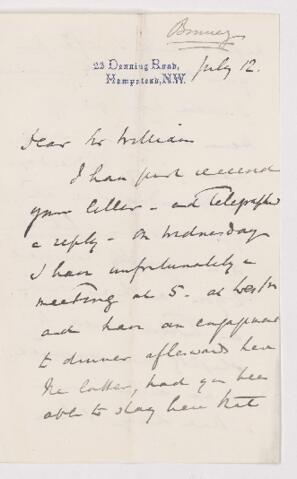 Bonney
23 Denning Road,
Hampstead, N.W.
July 12.
Dear Sr William
I have just received
your letter - and Telegraphed
a reply - On Wednesday
I have unfortunately a
meeting at 5. at
and have an engagement
to dinner afterwards here
the latter, had you been
able to stay here that